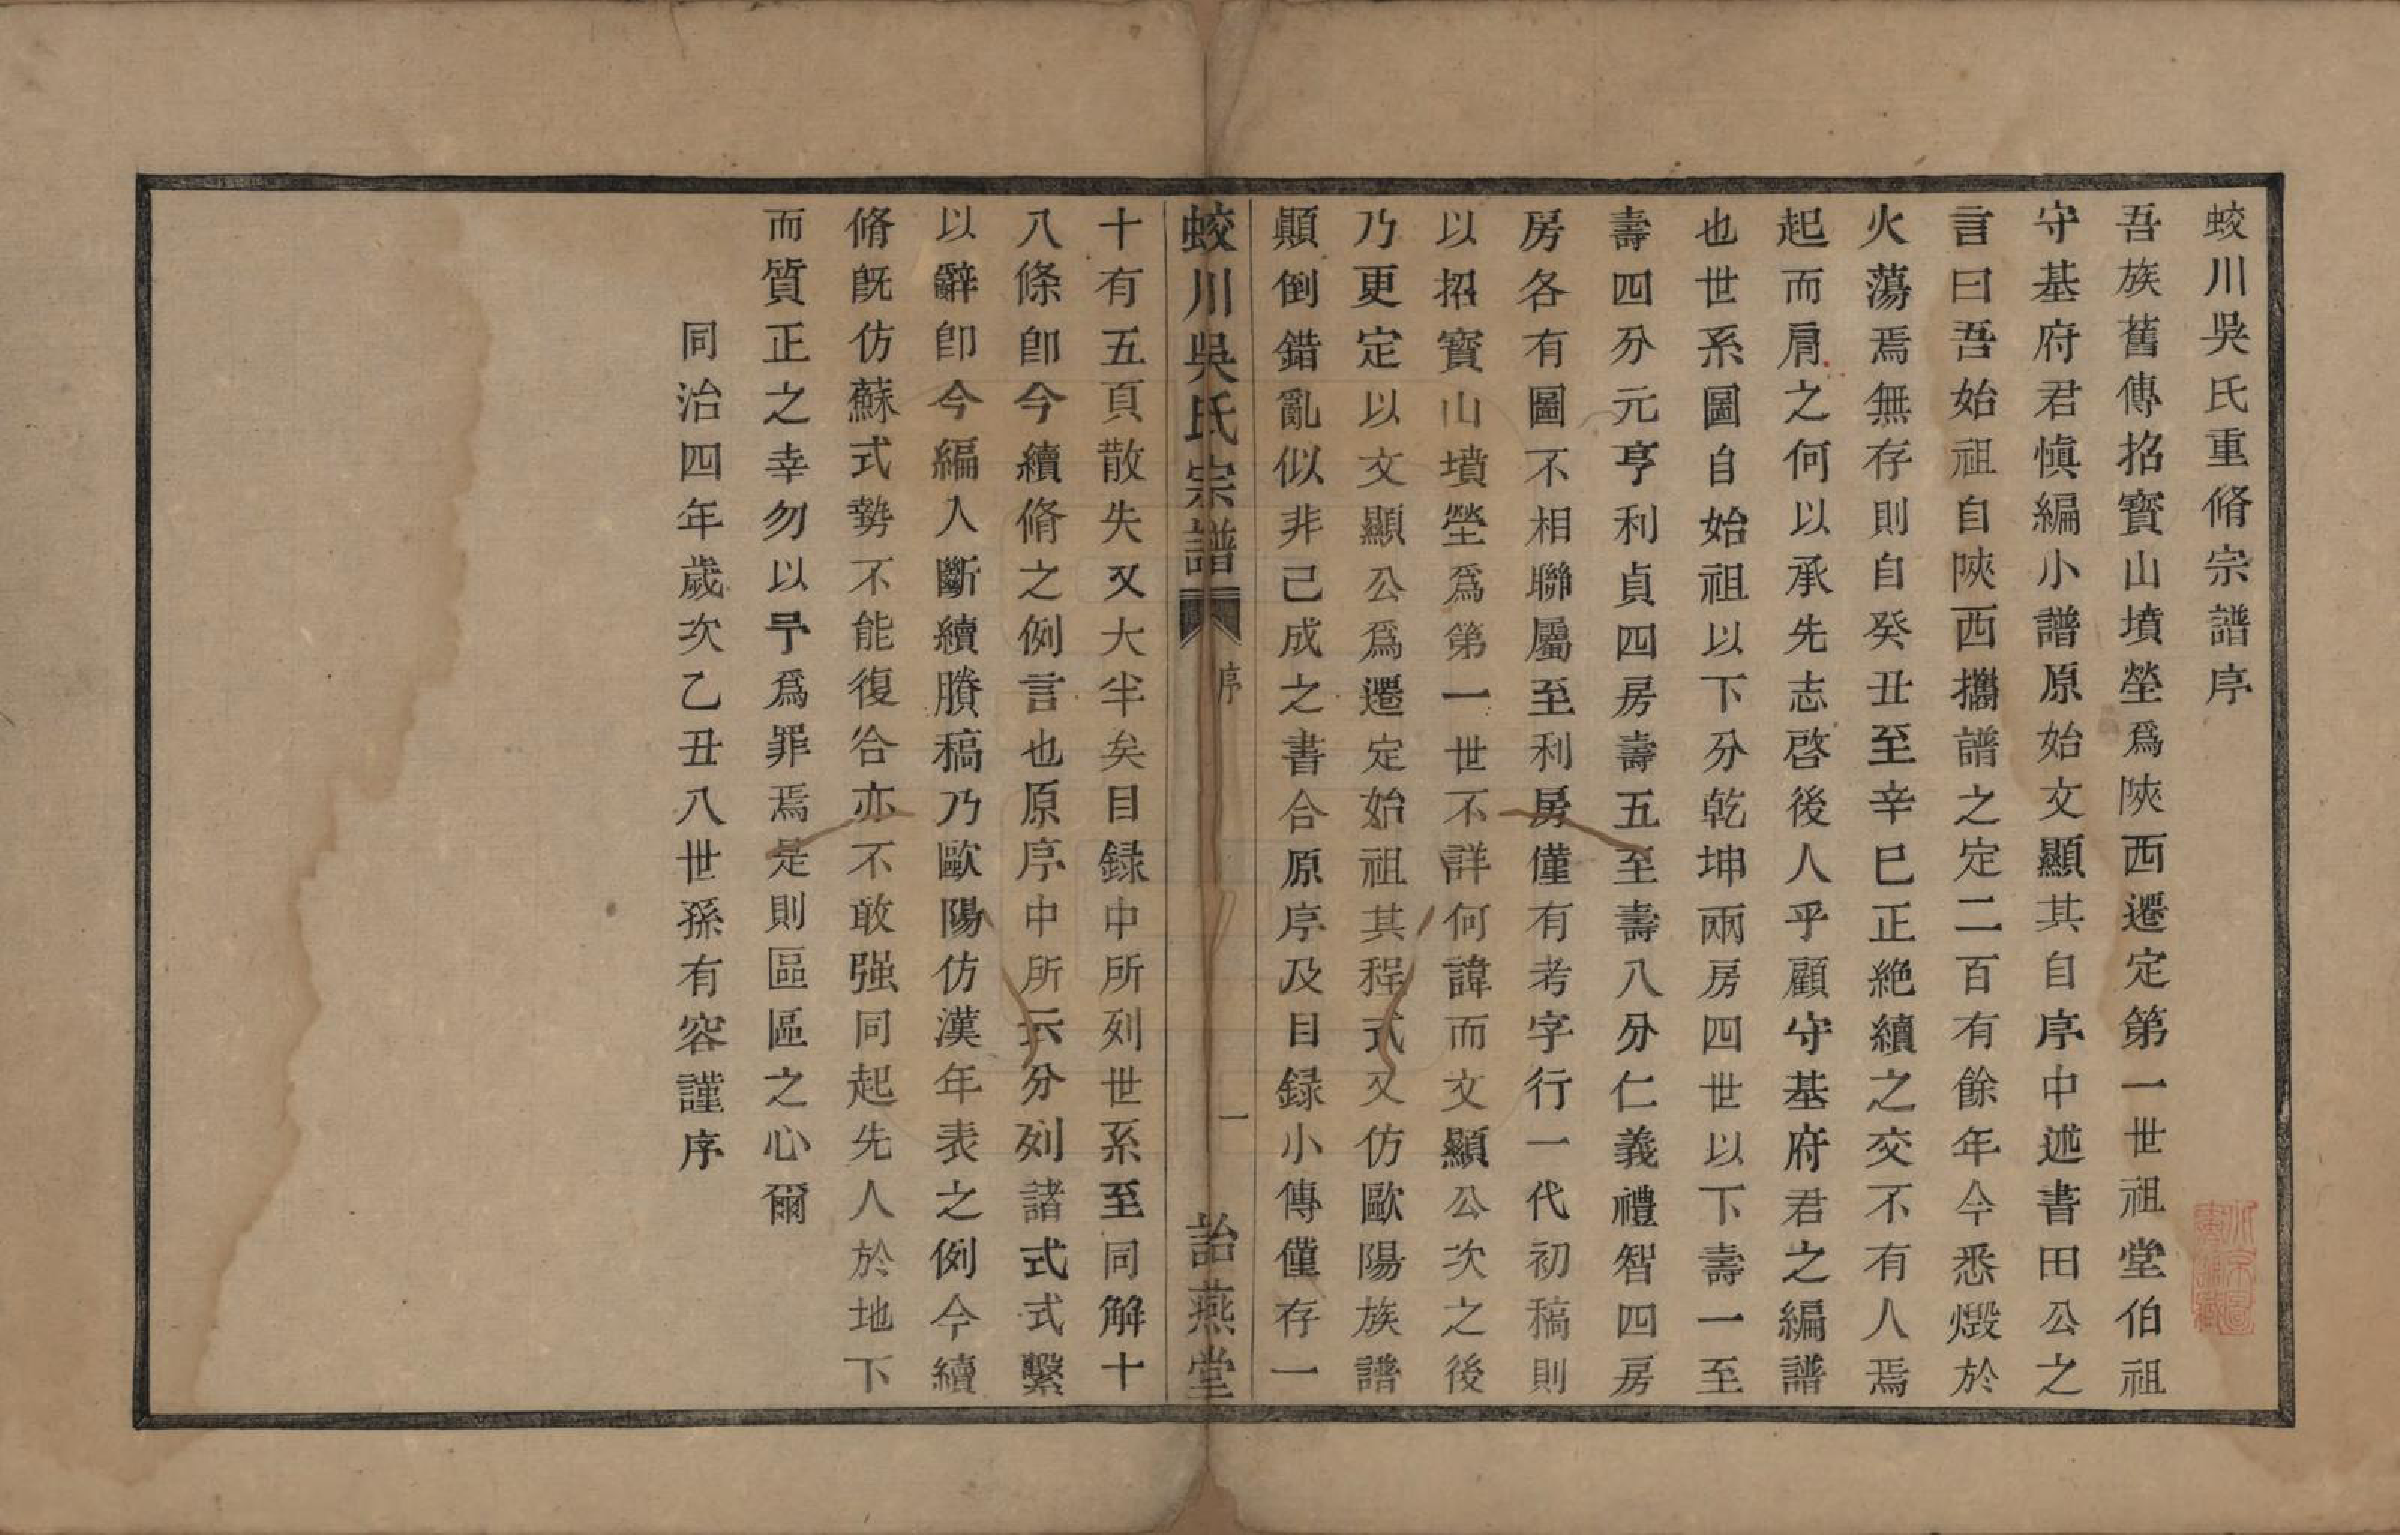 蛟川吳氏重脩宗譜序
吾族舊傳招寶山墳塋爲陝西遷定第一世祖堂伯祖
守基府君愼編小譜原始文顯其自序中述書田公之
言曰吾始祖自陝西攜譜之定二百有餘年今悉燬於
火蕩焉無存則自癸丑至辛巳正絶續之交不有人焉
起而肩之何以承先志啓後人乎顧守基府君之編譜
也世系圖自始祖以下分乾坤兩房四世以下壽一至
壽四分元亨利貞四房壽五至壽八分仁義禮智四房
房各有圖不相聯屬至利房僅有考字行一代初稿則
以招寶山墳塋爲第一世不詳何諱而文顯公次之後
乃更定以文顯公爲遷定始祖其程式又仿歐陽族譜
顚倒錯亂似非己成之書合原序及目録小傳僅存一
蛟川吳氏宗譜 序 一 詒燕堂
十有五頁散失又大半矣目録中所列世系至同解十
八條卽今續脩之例言也原序中所示分列諸式式繫
以辭卽今編入斷續賸稿乃歐陽仿漢年表之例今續
脩旣仿蘇式勢不能復合亦不敢强同起先人於地下
而質正之幸勿以予爲罪焉是則區區之心爾
同治四年歲次乙丑八世孫有容謹序